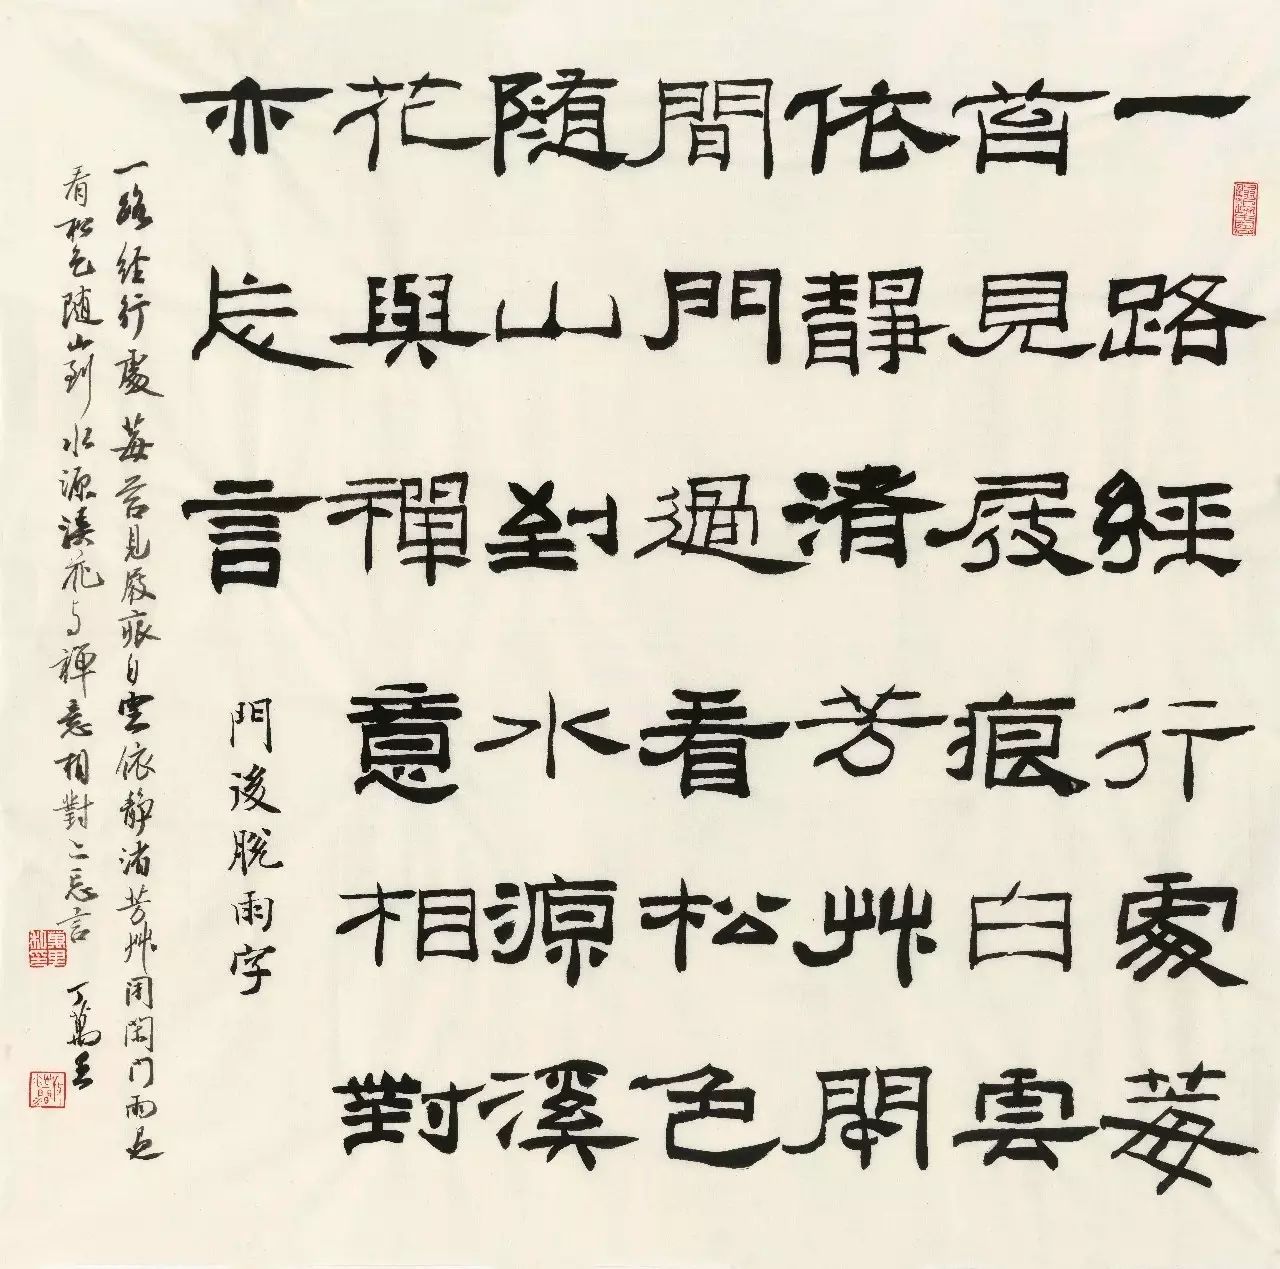 一路經行處莓
苔見屐痕白雲
依靜渚芳艸閉
間門過看松色
随山到水源溪
花與禪意相對
亦忘言
門後脫雨字
一路经行處莓苔見屐痕白雲依静渚芳艸闭閑门雨過
看松色随山到水源溪花与禅意相對亦忘言
丁萬